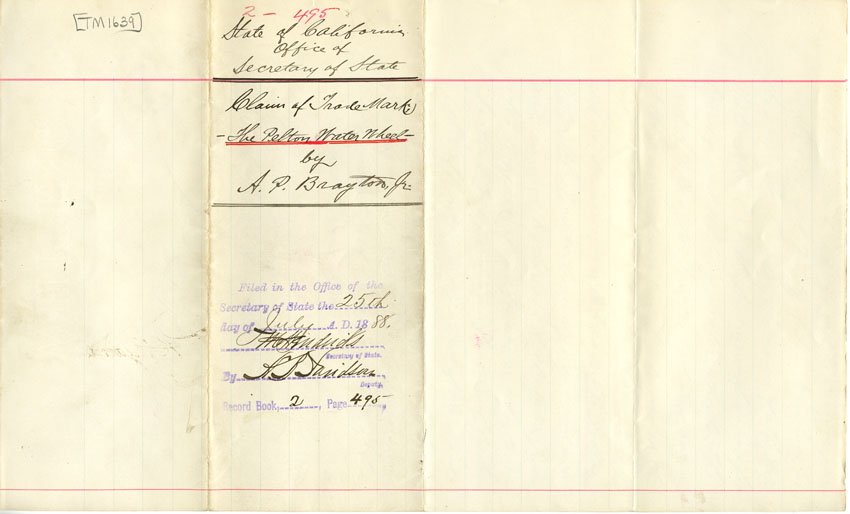 [TM1639]
2 - 495
State of California
Office of
Secretary of State
Claim of Trade Mark
- The Pelton Water Wheel -
by
A. P. Brayton, Jr.
Filed in the Office of the
Secretary of State the 25th
day of July A. D. 1888.
Secretary of State.
By Davidson
Deputy.
Record Book, 2, Page 495,